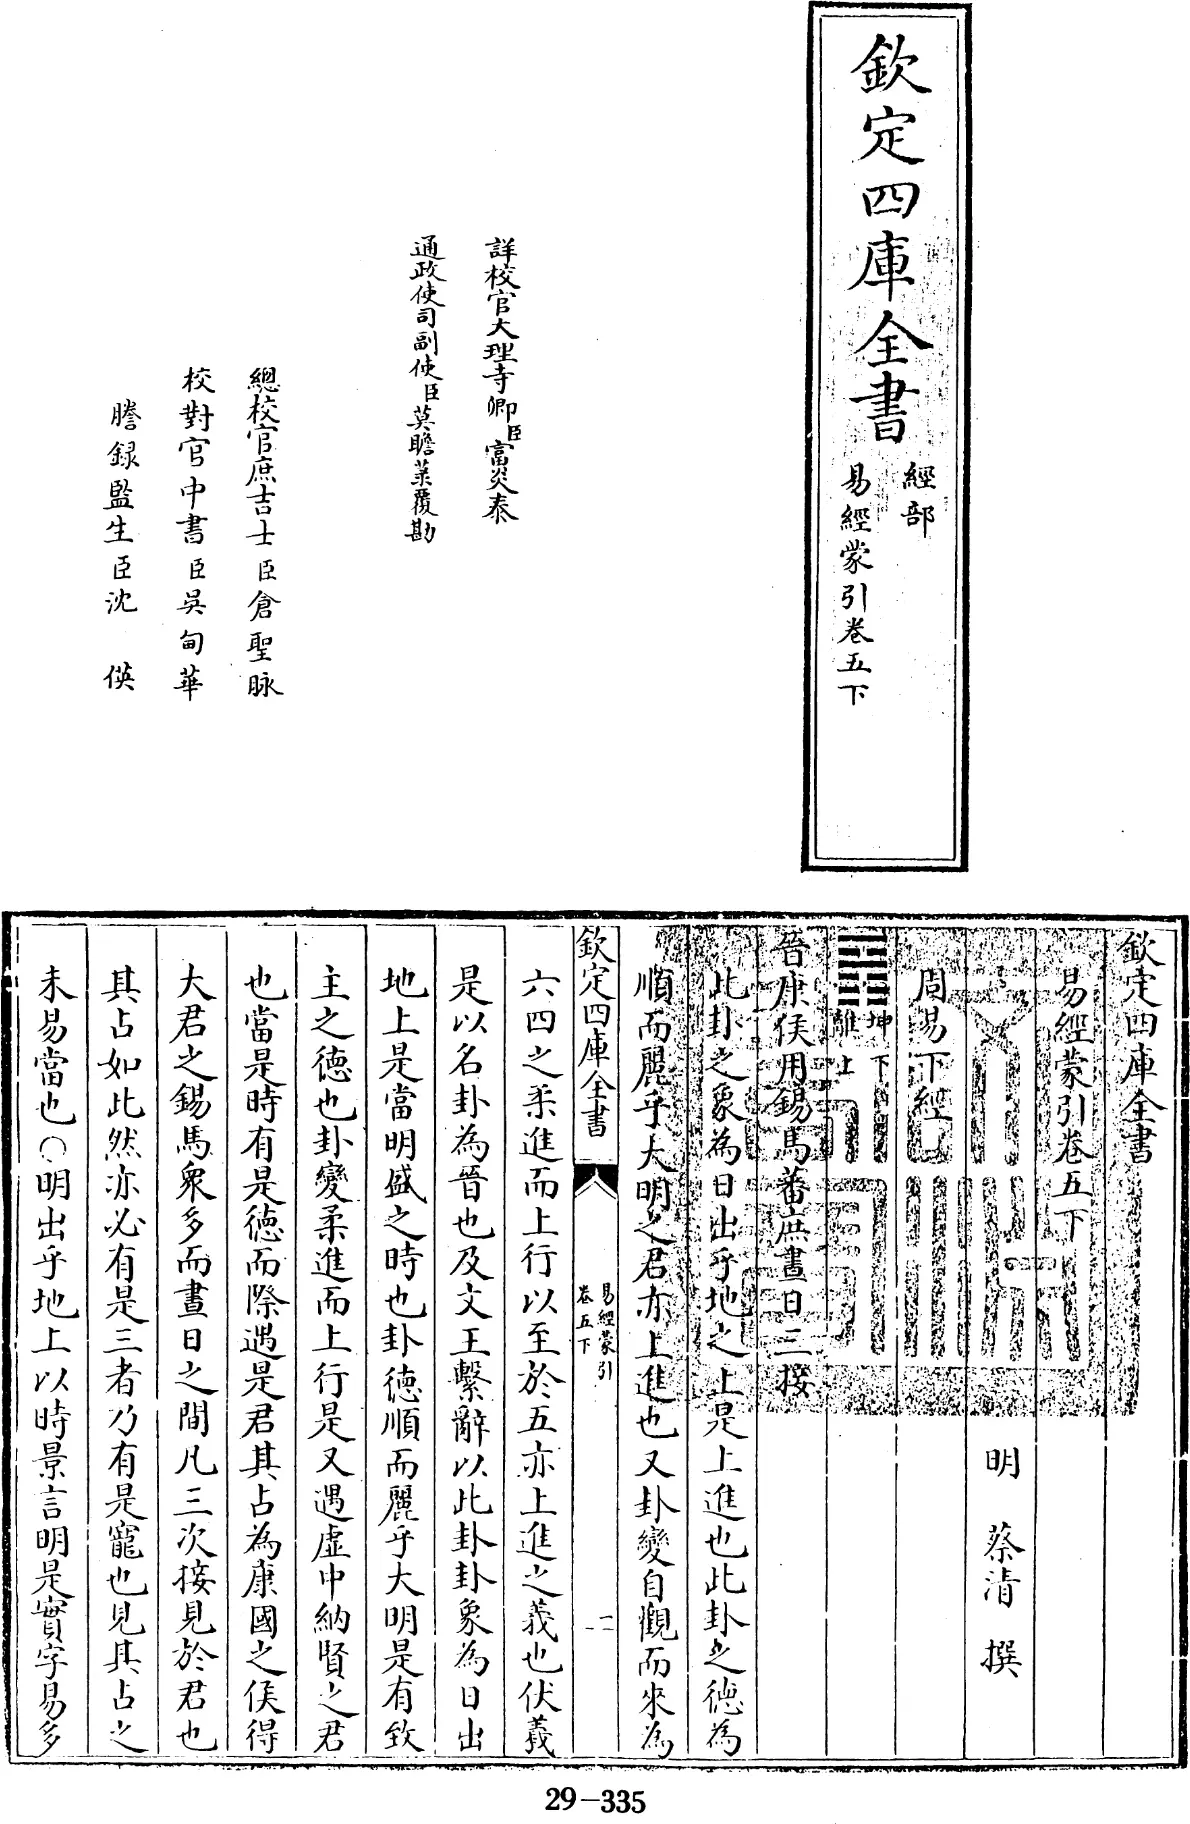 欽定四庫全書
經部
易經蒙引卷五下
詳校官大理寺卿臣富炎泰
通政使司副使臣莫瞻菉覆勘
總校官庶吉士臣倉聖脉
校對官中書臣吳甸華
謄録監生臣沈 偀
欽定四庫全書
易經蒙引卷五下
明 蔡清 撰
周易下經
坤下
離上
晉康侯用錫馬蕃庶晝日三接
此卦之象為日出乎地之上是上進也此卦之德為
順而麗乎大明之君亦上進也又卦變自觀而來為
欽定四庫全書
易經蒙引
卷五下
一
六四之柔進而上行以至於五亦上進之義也伏羲
是以名卦為晉也及文王繫辭以此卦卦象為日出
地上是當明盛之時也卦德順而麗乎大明是有致
主之德也卦變柔進而上行是又遇虛中納賢之君
也當是時有是德而際遇是君其占為康國之侯得
大君之錫馬衆多而晝日之間凡三次接見於君也
其占如此然亦必有是三者乃有是寵也見其占之
未易當也○明出乎地上以時景言明是實字易多
29-335